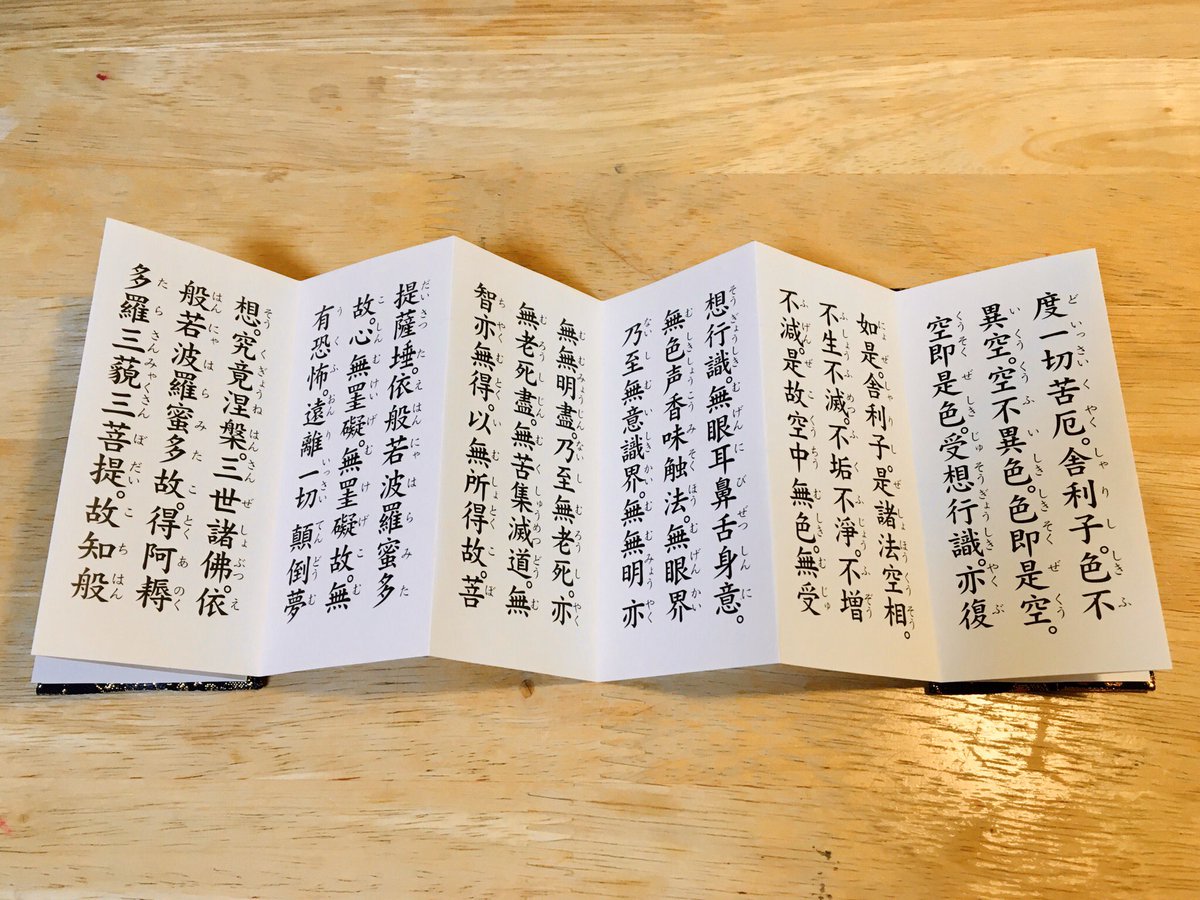 度一切苦厄。舎利子。色不
異空。空不異色。色即是空。
空即是色。受想行識。亦復
如是。舎利子。是諸法空相。
不生不滅。不垢不淨。不増
不減。是故空中無色。無受
想行識。無眼耳鼻舌身意。
無色声香味触法。無眼界
乃至無意識界。無無明亦
無無明盡。乃至無老死。亦
無老死盡。無苦集滅道。無
智亦無得。以無所得故。菩
提薩埵。依般若波羅蜜多
故。心無罣礙。無罣礙故。無
有恐怖。遠離一切顛倒夢
想。究竟涅槃。三世諸佛。依
般若波羅蜜多故。得阿耨
多羅三藐三菩提。故知般